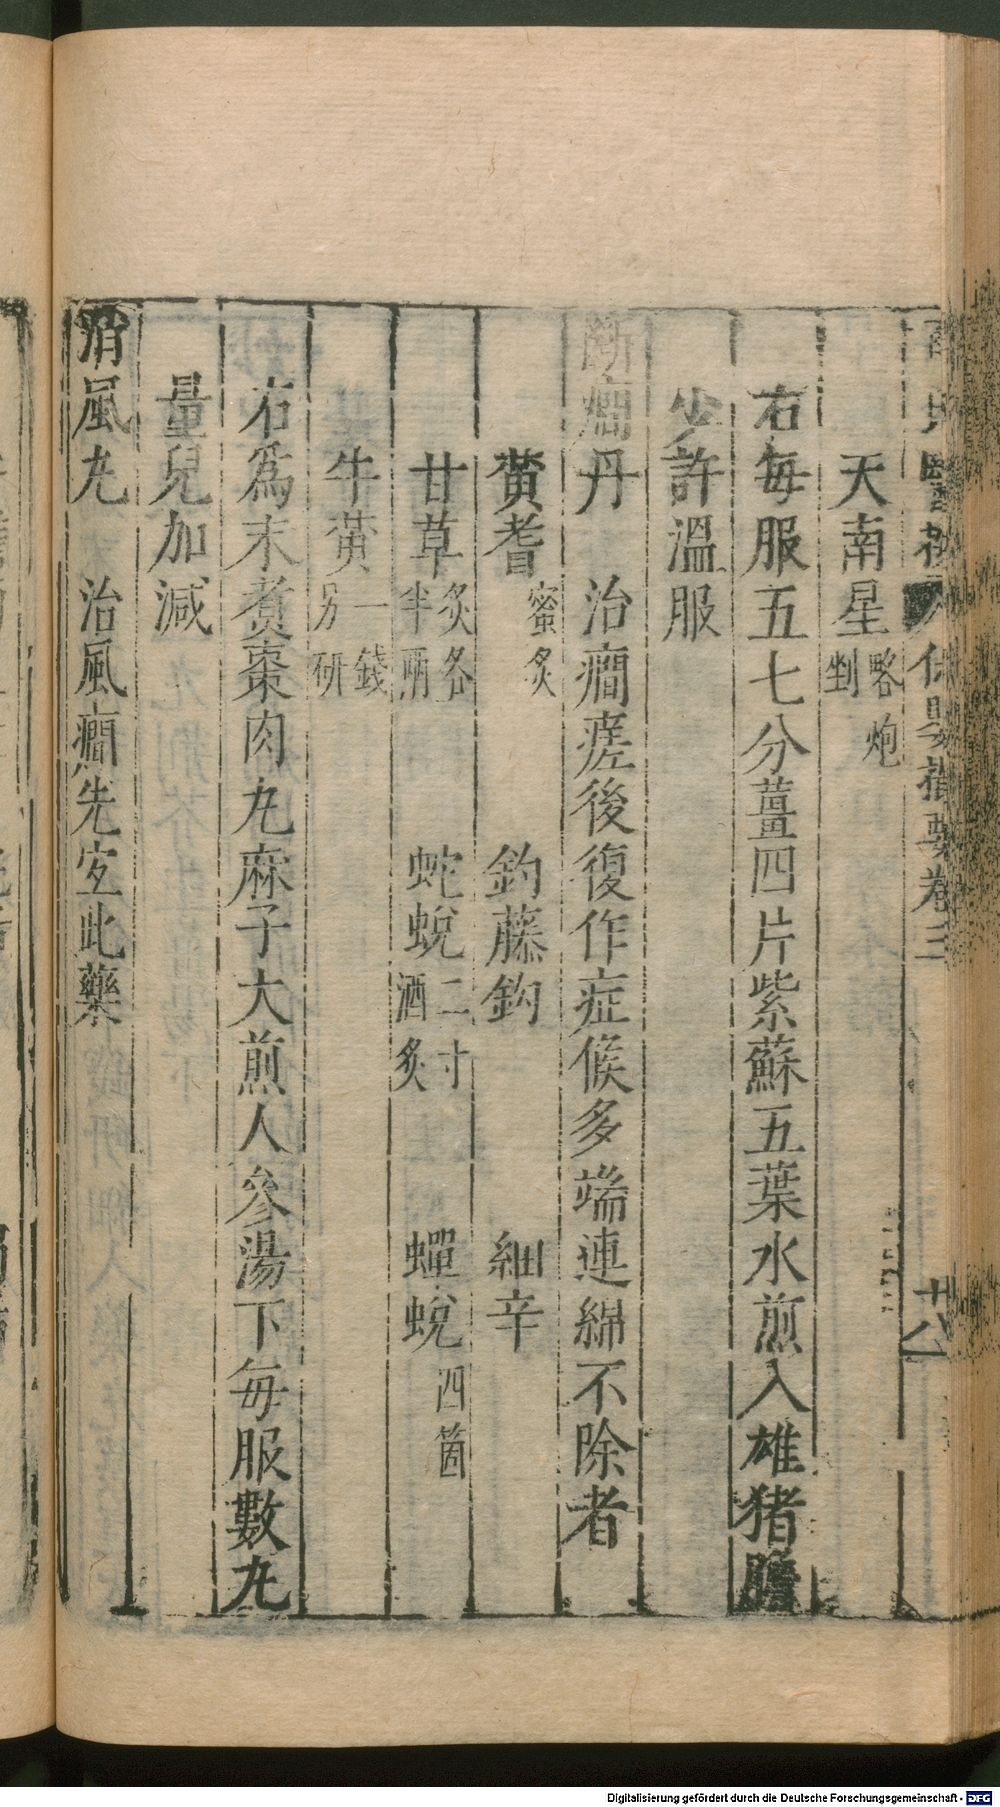 保嬰撮要卷三
十八
天南星畧炮剉
右每服五七分薑四片紫蘇五葉水煎入雄猪膽
少許溫服
斷癎丹　治癎瘥後復作症候多端連綿不除者
黄耆蜜炙　鈎藤鈎　細辛
甘草炙各半兩　蛇蛻二寸酒炙　蟬蛻四箇
牛黄一錢另研
右為末煮棗肉丸麻子大煎人參湯下每服數丸
量兒加減
消風丸　治風癎先宜此藥
Digitalisierung gefördert durch die Deutsche Forschungsgemeinschaft - DFG